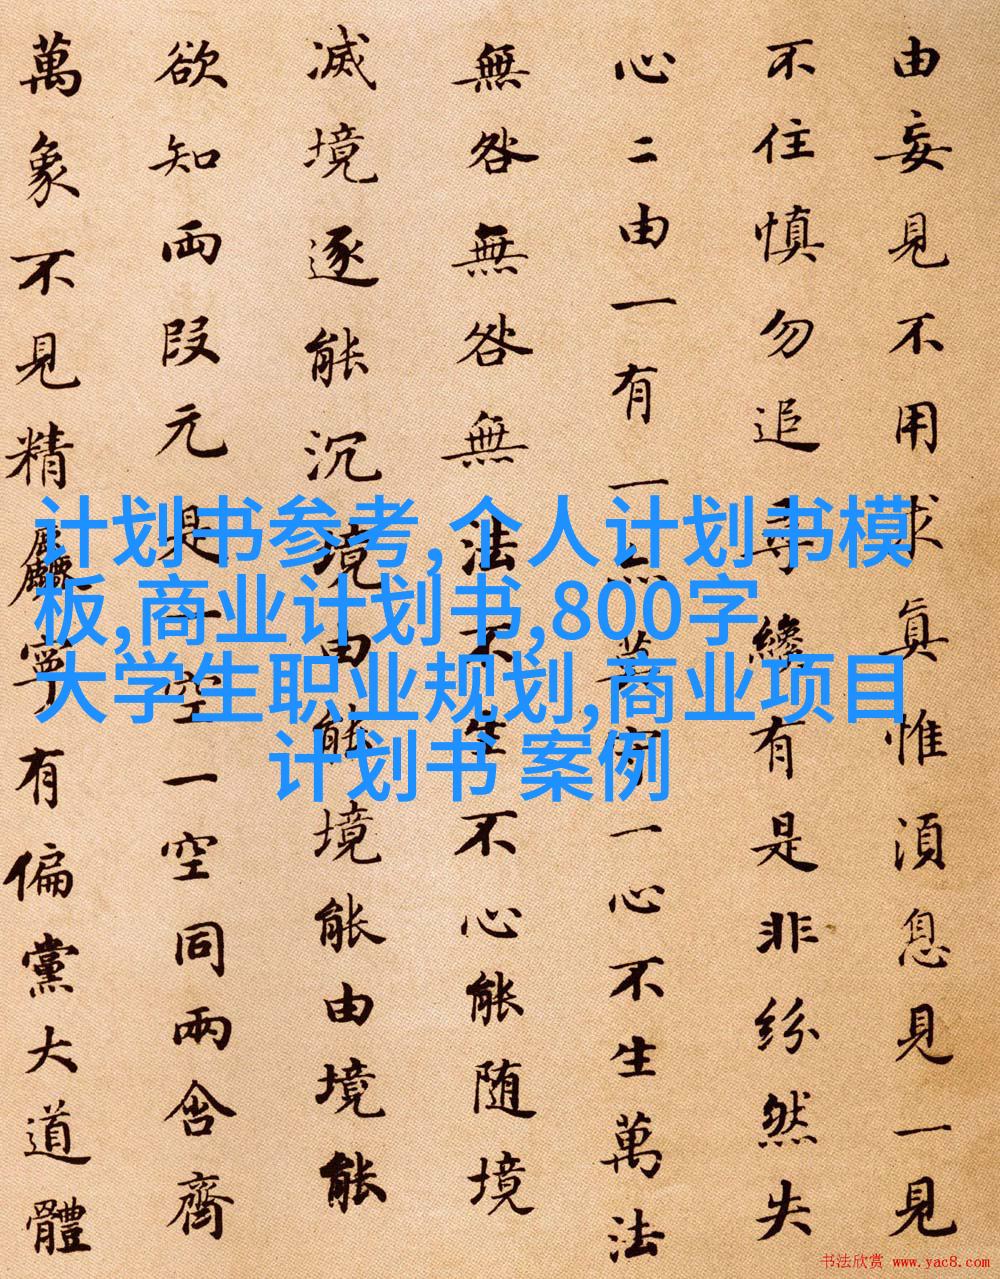 由妄見不用求真惟湏息見一見
不住慎勿追尋纔有是非紛然失
心二由一有一亦莫守一心不生萬法
無咎無咎無法不生不心能随境
滅境逐能沉境由能境能由境能
欲知兩段元是一空一空同兩含齊
萬象不見精麤寧有偏黨大道體
计划书参考,个人计划书模
板,商业计划书,800字
大学生职业规划,商业项目
计划书 案例
书法欣赏 www.yac8.com